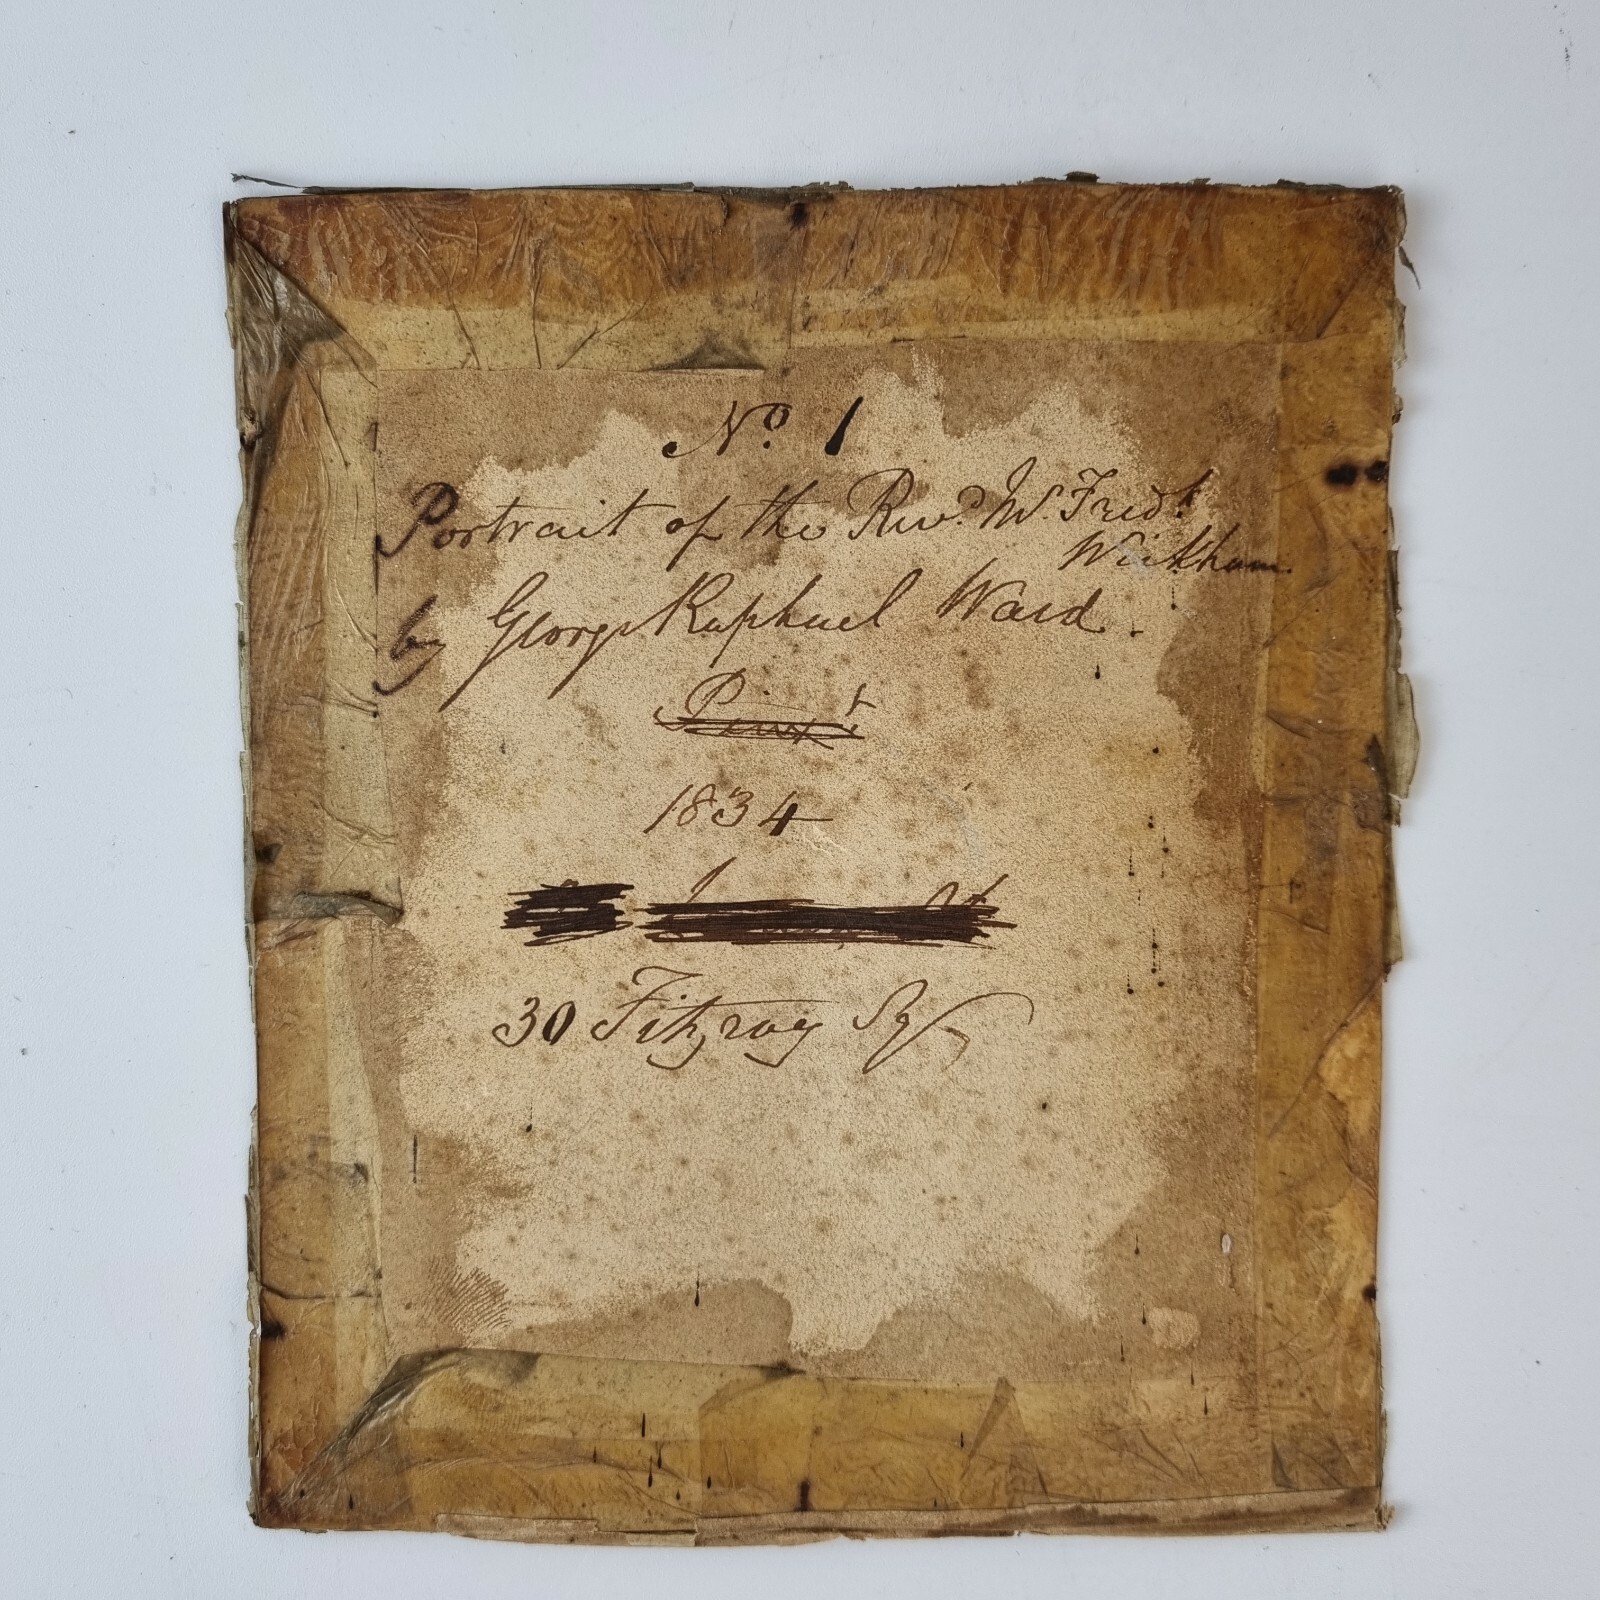 No. 1
Portrait of the Revd. W. Fredk.
Wickham
by George Raphael Ward.
Pinxt
1834
30 Fitzroy Sqr